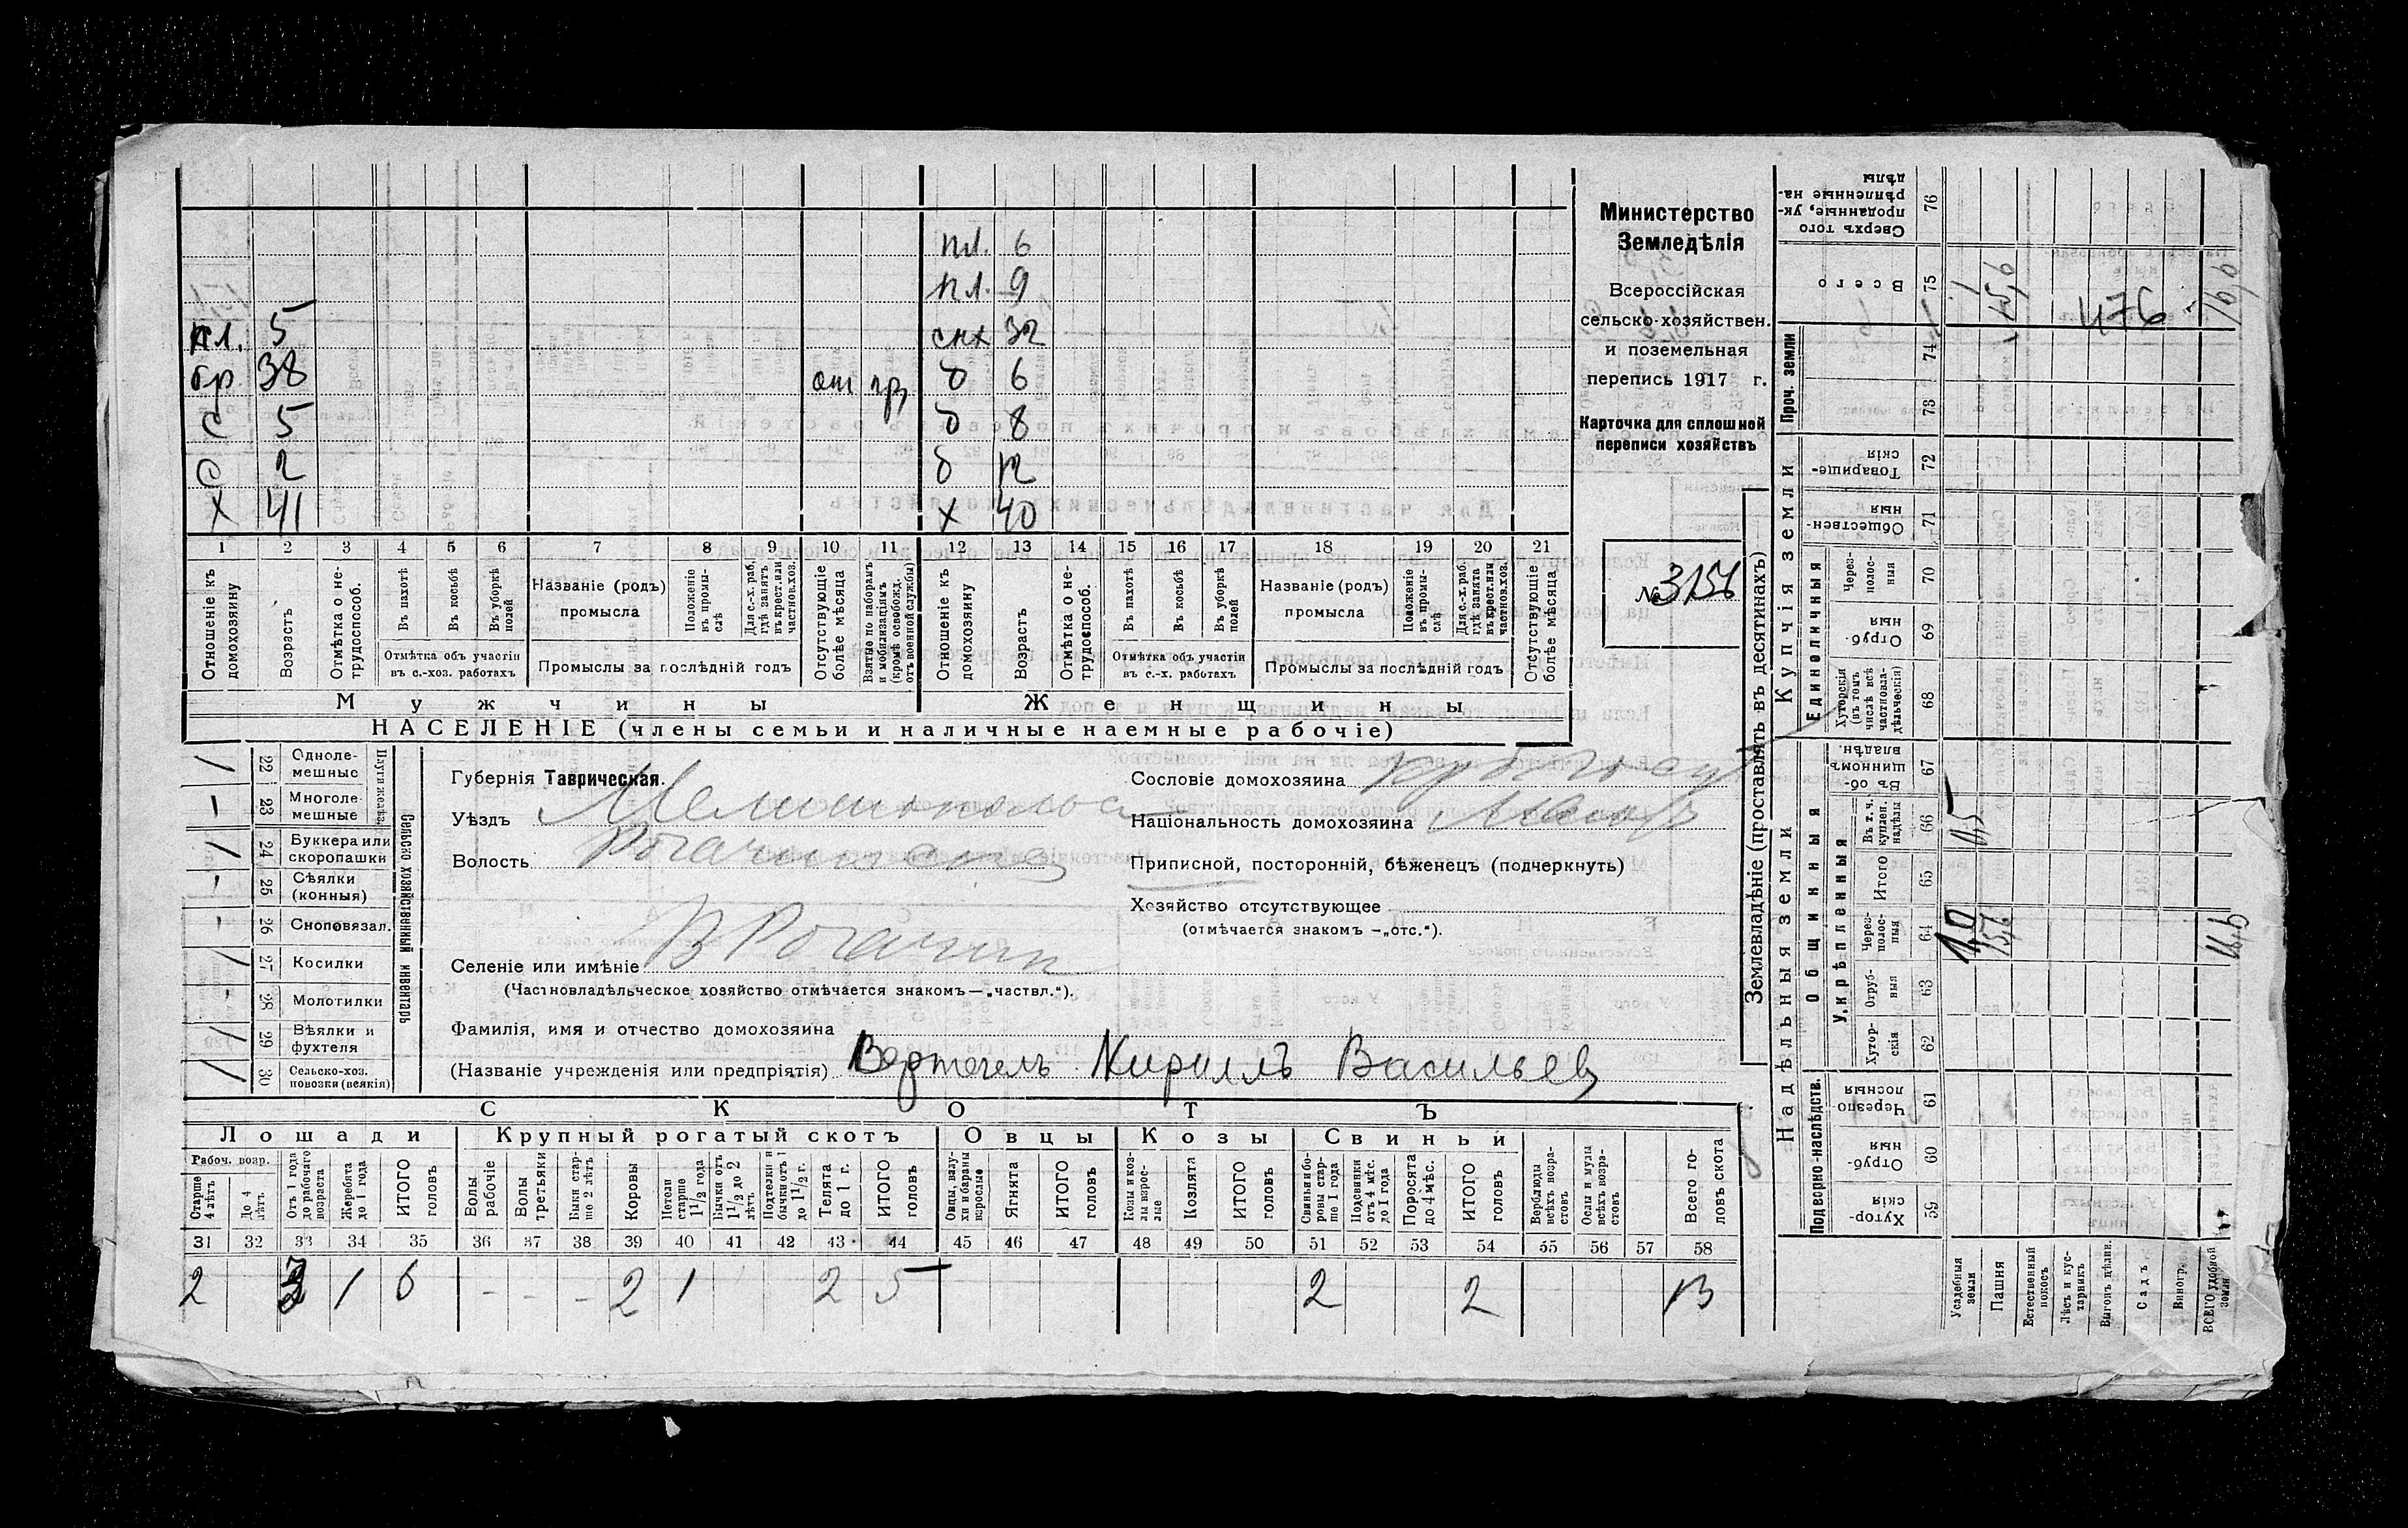 пл. 6
пл. 9
пл. 5 снх 32
бр 38 от пр б 6
с 5 б 8
с 2 б 12
х 41 х 40
1 2 3 4 5 6 7 8 9 10 11 12 13 14 15 16 17 18 19 20 21
Отношеніе къ домохозяину
Возрастъ
Отмѣтка о не-трудоспособ.
Въ пахотѣ
Въ косьбѣ
Въ уборкѣ полей
Отмѣтка объ участіи
въ с.-хоз. работахъ
Названіе (родъ)
промысла
Положеніе въ промы-слѣ
Для с.-х. раб. гдѣ занятъ въ крест. или частнов. хоз.
Промыслы за послѣдній годъ
Отсутствующіе болѣе мѣсяца
Взятые по наборамъ и мобилизаціямъ (кромѣ освобожд. отъ военной службы)
Отношеніе къ домохозяину
Возрастъ
Отмѣтка о не-трудоспособ.
Въ пахотѣ
Въ косьбѣ
Въ уборкѣ полей
Отмѣтка объ участіи
въ с.-х. работахъ
Названіе (родъ)
промысла
Положеніе въ промы-слѣ
Для с.-х. раб. гдѣ занята въ крест. или частнов. хоз.
Промыслы за послѣдній годъ
Отсутствующіе болѣе мѣсяца
Мужчины Женщины
НАСЕЛЕНІЕ (члены семьи и наличные наемные рабочіе)
Министерство
Земледѣлія
Всероссійская
сельско-хозяйствен.
и поземельная
перепись 1917 г.
Карточка для сплошной
переписи хозяйствъ
№ 3156
Сельско-хозяйственный инвентарь
Плуги желѣз.
22 Одноле-мешные
23 Многоле-мешные
24 Буккера или скоропашки
25 Сѣялки (конныя)
26 Сноповязал.
27 Косилки
28 Молотилки
29 Вѣялки и фухтеля
30 Сельско-хоз. повозки (всякія)
Губернія Таврическая.
Уѣздъ Мелитопольск
Волость Рогачикская
Селеніе или имѣніе В Рогачик
(Частновладѣльческое хозяйство отмѣчается знакомъ—„частвл.“).
Фамилія, имя и отчество домохозяина
(Названіе учрежденія или предпріятія) Вертегелъ Кириллъ Васильев
Сословіе домохозяина
Національность домохозяина
Приписной, посторонній, бѣженецъ (подчеркнуть)
Хозяйство отсутствующее
(отмѣчается знакомъ —„отс.“).
СКОТЪ
Лошади Крупный рогатый скотъ Овцы Козы Свиньи
Рабоч. возр.
Старше 4 лѣтъ
До 4 лѣтъ
Отъ 1 года до рабочаго возраста
Жеребята до 1 года
ИТОГО головъ
Волы рабочіе
Волы третьяки
Быки стар-ше 2 лѣтъ
Коровы
Нетели старше 1 1/2 года
Бычки отъ 1 1/2 до 2 лѣтъ
Подтелки и бычки отъ 1 до 1 1/2 г.
Телята до 1 г.
ИТОГО головъ
Овцы, валу-хи и бараны взрослые
Ягнята
ИТОГО головъ
Козы и коз-лы взрос-лые
Козлята
ИТОГО головъ
Свиньи и бо-ровы стар-ше 1 года
Подсвинки отъ 4 мѣс. до 1 года
Поросята до 4 мѣс.
ИТОГО головъ
Верблюды всѣхъ возра-стовъ
Ослы и мулы всѣхъ возра-стовъ
Всего го-ловъ скота
31 32 33 34 35 36 37 38 39 40 41 42 43 44 45 46 47 48 49 50 51 52 53 54 55 56 57 58
2 3 1 6 - - - 2 1 2 5 2 2 13
Землевладѣніе (проставлять въ десятинахъ)
Надѣльныя земли Купчія земли Проч. земли
Подворно-наслѣдств.
Общинныя
Укрѣпленныя
Единоличныя
Хутор-скія 59
Отруб-ныя 60
Черезпо-лосныя 61
Хутор-скія 62
Отруб-ныя 63
Черезъ-полос-ныя 64
Итого 65
Въ т. ч. куплен. надѣлы 66
Въ об-щинномъ владѣн. 67
Хуторскія (въ томъ числѣ всѣ частновла-дѣльческія) 68
Отруб-ныя 69
Через-полос-ныя 70
Обществен-ныя 71
Товарище-скія 72
73
74
Всего 75
Сверхъ того проданные, ук-рѣпленные на-дѣлы 76
Усадебныя земли
Пашня
Естественный покосъ
Лѣсъ и кус-тарникъ
Выгонъ цѣлин.
Садъ
Виногр.
ВСЕГО удобной земли
476